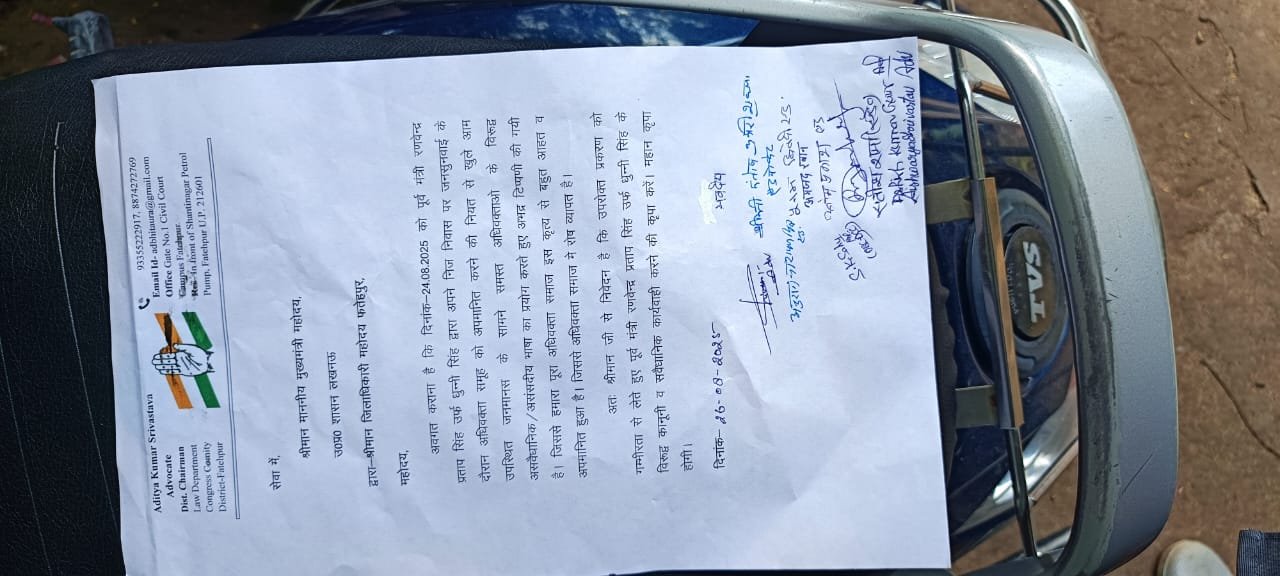 Aditya Kumar Srivastava
Advocate
Dist. Chairman
Law Department
Congress Comity
District-Fatehpur
9335522917, 8874272769
Email Id- adbhitaura@gmail.com
Office Gate No.1 Civil Court
Campus Fatehpur.
Res- In front of Shantinagar Petrol
Pump, Fatehpur U.P. 212601
सेवा में,
श्रीमान माननीय मुख्यमंत्री महोदय,
उ०प्र० शासन लखनऊ
द्वारा–श्रीमान जिलाधिकारी महोदय फतेहपुर,
महोदय,
अवगत कराना है कि दिनांक–24.08.2025 को पूर्व मंत्री रणवेन्द्र
प्रताप सिंह उर्फ धुन्नी सिंह द्वारा अपने निज निवास पर जनसुनवाई के
दौरान अधिवक्ता समूह को अपमानित करने की नियत से खुले आम
उपस्थित जनमानस के सामने समस्त अधिवक्ताओं के विरूद्ध
असवैधानिक/असंसदीय भाषा का प्रयोग करते हुए अभद्र टिप्पणी की गयी
है। जिससे हमारा पूरा अधिवक्ता समाज इस कृत्य से बहुत आहत व
अपमानित हुआ है जिससे अधिवक्ता समाज मे रोष व्याप्त है।
अतः श्रीमान जी से निवेदन है कि उपरोक्त प्रकरण को
गम्भीरता से लेते हुए पूर्व मंत्री रणवेन्द्र प्रताप सिंह उर्फ धुन्नी सिंह के
विरूद्ध कानूनी व सवैधानिक कार्यवाही करने की कृपा करें। महान कृपा
होगी।
दिनांक– 26-08-2025
भवदीय
एडवोकेट
सतीश शर्मा (एडवो)
Adv